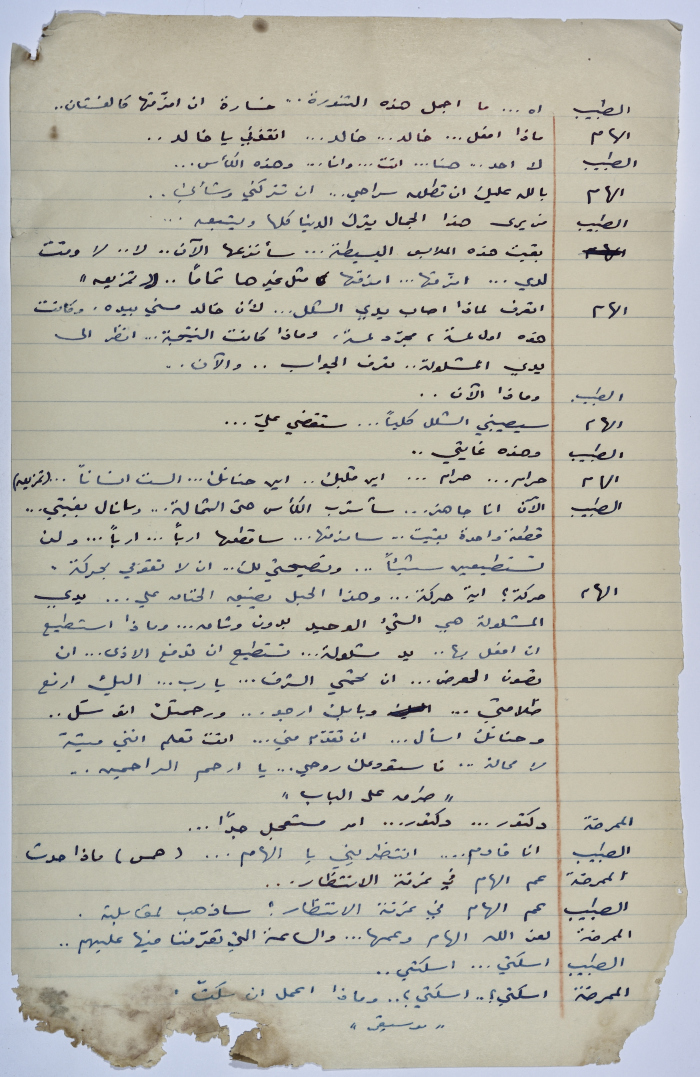 الطبيب اه ... ما اجمل هذه التنورة ... خسارة ان امزّقها كالفستان..
الهام ماذا افعل ... خالد ... خالد ... انقذني يا خالد ..
الطبيب لا احد ... هنا ... انت ... وانا ... وهذه الكأس ...
الهام بالله عليك ان تطلق سراحي ... ان تتركني وشأني ..
الطبيب من يرى هذا الجمال يترك الدنيا كلها ويتبعه ...
بقيت هذه الملابس البسيطة ... سأنزعها الآن .. لا .. لا وقت
لدي ... امزقها ... امزقها مثل غيرها تماماً .. "تمزيق"
الهام اتعرف لماذا اصاب يدي الشلل ... لأن خالد مسني بيده . وكانت
هذه اول لمسة ، مجرّد لمسة ، وماذا كانت النتيجة .. انظر الى
يدي المشلولة .. تعرف الجواب .. والآن ..
الطبيب . وماذا الآن ..
الهام سيصيبني الشلل كلياً ... ستقضي عليّ ...
الطبيب وهذه غايتي ..
الهام حرام ... حرام ... اين قلبك .. اين حنانك ... الست انساناً ... (تمزيق)
الطبيب الآن انا جاهز ... سأشرب الكأس حتى الثمالة ... وسأنال بغيتي ...
قطعة واحدة بقيت .. سامزقها ... ساقطعها ارباً ... ارباً ... ولن
تستطيعين شيئاً ... ونصيحتي لك .. ان لا تقومي بحركة .
الهام حركة ؟ اية حركة ... وهذا الحبل يضيق الخناق علي ... يدي
المشلولة هي الشيء الوحيد بدون وثاق ... وماذا استطيع
ان افعل بها .. يد مشلولة ... تستطيع ان تدفع الاذى ... ان
تصون العرض ... ان تحمي الشرف ... يا رب ... اليك ارفع
ظلامتي ... وبابك ارجو ... ورحمتك اتوسّل ..
وحنانك اسأل ... ان تقدّم مني ... انت تعلم انني ميتة
لا محالة .. ساستودعك روحي ... يا ارحم الراحمين ..
" طرق على الباب "
الممرضة دكتور ... دكتور ... امر مستعجل جدّاً ...
الطبيب انا قادم .... انتظريني يا الهام ... (همس) ماذا حدث
الممرضة عم الهام في غرفة الانتظار ...
الطبيب عم الهام في غرفة الانتظار ؟ ساذهب لمقابلته .
الممرضة لعن الله الهام وعمها ... والساعة التي تعرّفنا فيها عليهم ..
الطبيب اسكتي ... اسكتي ..
الممرضة اسكتي ؟ .. اسكتي ؟ .. وماذا اعمل ان سكتّ .
" موسيقى "